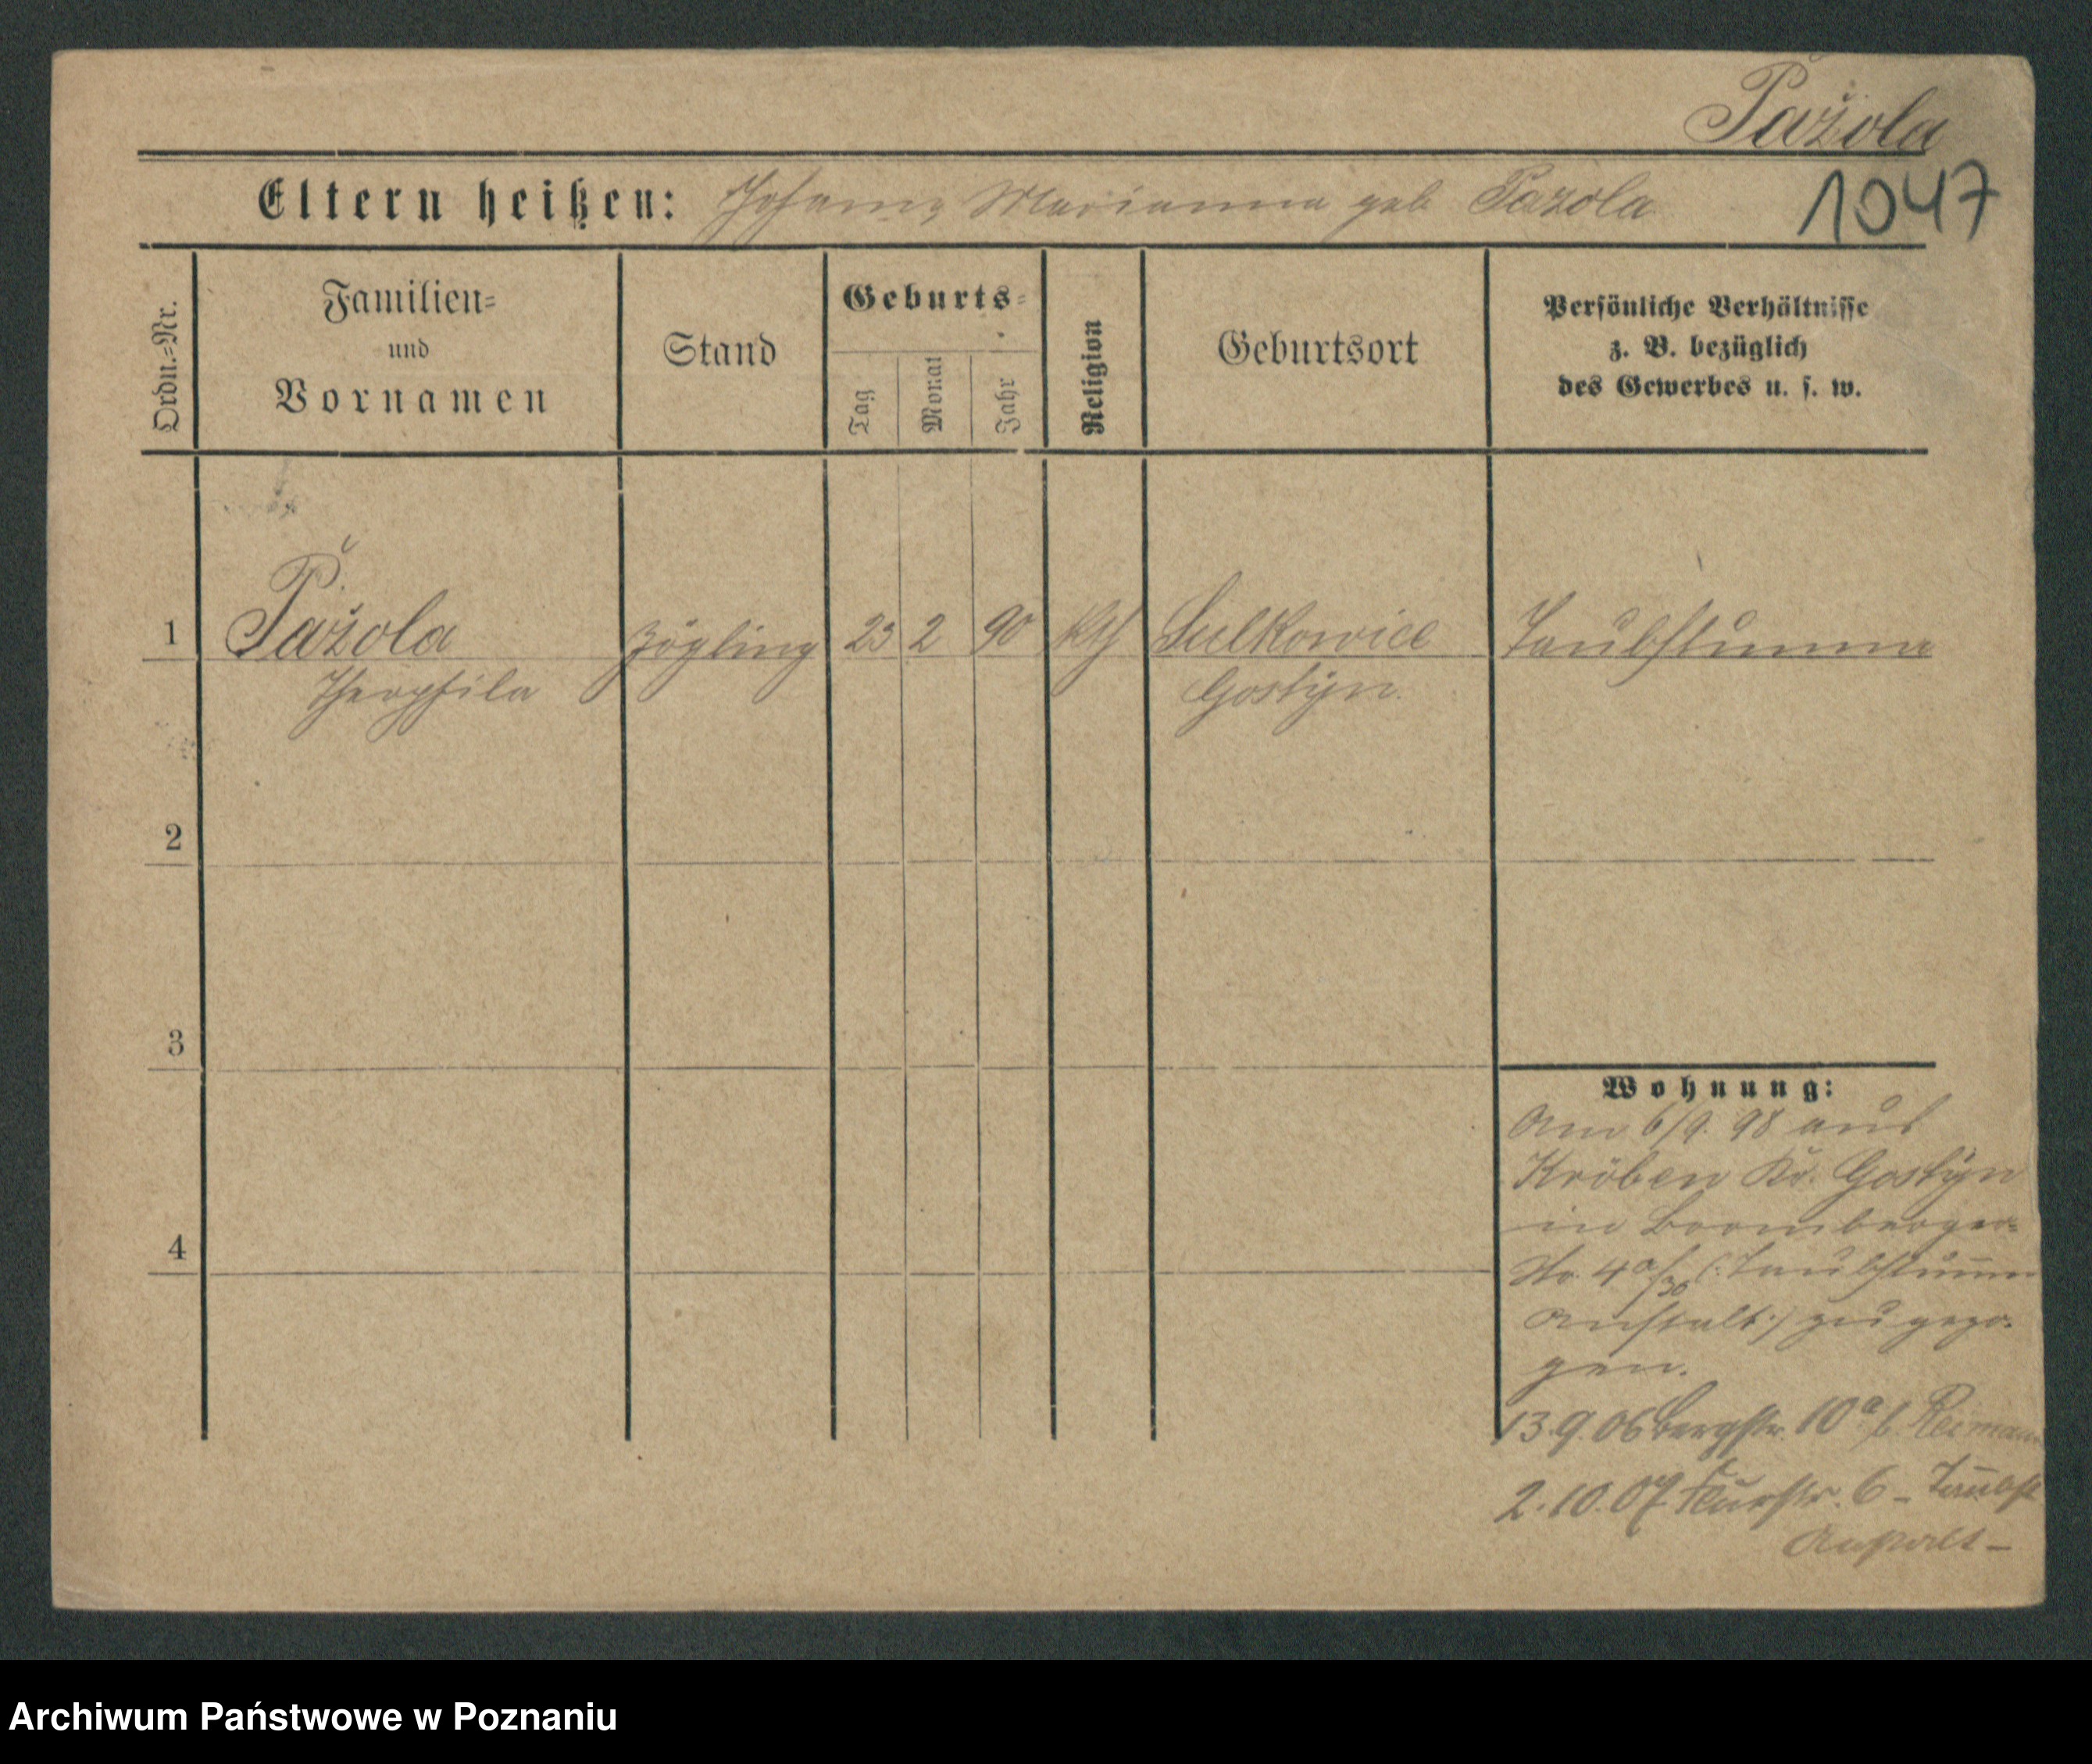 Pažola
Eltern heißen: Johann, Marianna geb Pazola
1047
Ordn.=Nr.
Familien=
und
Vornamen
Stand
Geburts=
Tag
Monat
Jahr
Religion
Geburtsort
Persönliche Verhältnisse
z. B. bezüglich
des Gewerbes u. s. w.
1 Pažola Zögling 23 2 90 Kth Sulkowice Taubstumme
Theophila Gostyn.
2
3
4
Wohnung:
Am 6/9. 98 aus
Kröben Kr. Gostyn
in Bromberger-
Str. 4a (: Taubstumm
Anstalt :) zugezo-
gen.
13.9.06 Bergstr. 10a b. Reimann
2.10.07 Flurstr. 6 - Taubst
Anstalt -
Archiwum Państwowe w Poznaniu